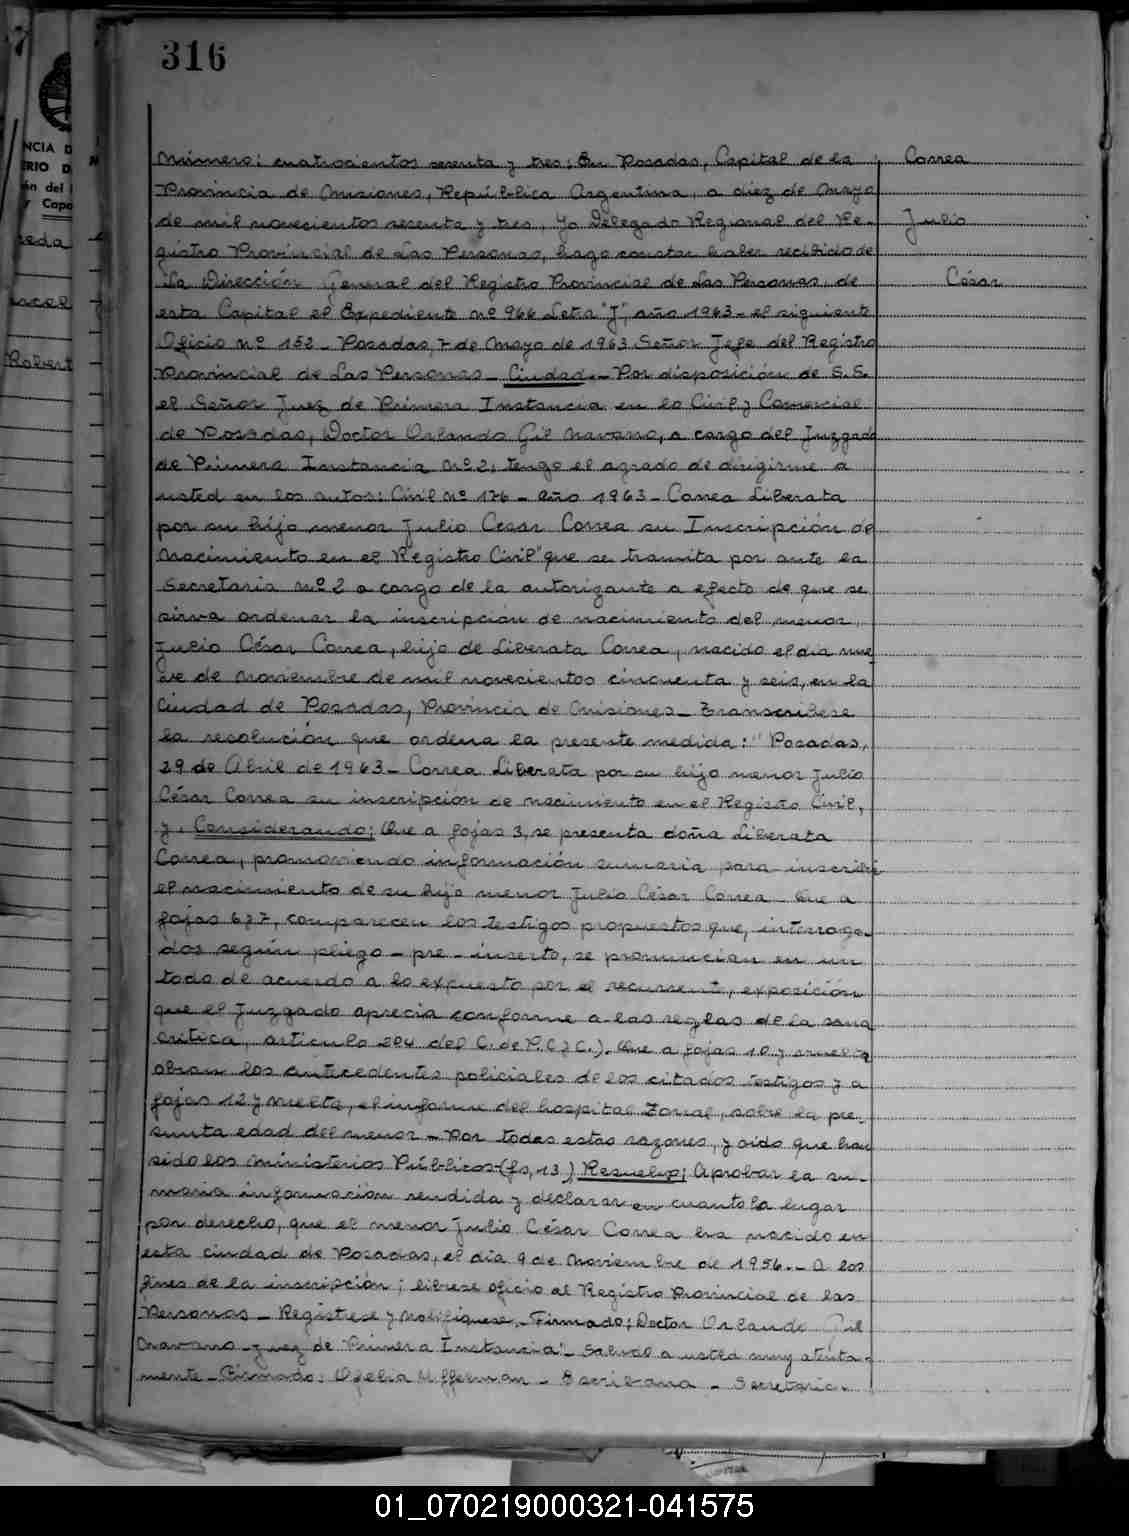 316
Número: cuatrocientos sesenta y tres: En Posadas, Capital de la
Correa
Provincia de Misiones, República Argentina, a diez de Mayo
de mil novecientos sesenta y tres, Yo Delegado Regional del Re-
Julio
gistro Provincial de Las Personas, hago constar haber recibido de
La Dirección General del Registro Provincial de Las Personas, de
César
esta Capital el Expediente nº 966 Letra "J", año 1963 - el siguiente
Oficio nº 152 - Posadas, 7 de Mayo de 1963 Señor Jefe del Registro
Provincial de Las Personas - Ciudad - Por disposición de S.S.
el Señor Juez de Primera Instancia en lo Civil y Comercial
de Posadas, Doctor Orlando Gil Navarro, a cargo del Juzgado
de Primera Instancia nº 2, tengo el agrado de dirigirme a
usted en los autos: Civil nº 176 - año 1963 - Correa Liberata
por su hijo menor Julio Cesar Correa su Inscripción de
Nacimiento en el Registro Civil" que se tramita por ante la
Secretaria nº 2 a cargo de la autorizante a efecto de que se
sirva ordenar la inscripción de nacimiento del menor,
Julio César Correa, hijo de Liberata Correa, nacido el día nue-
ve de Noviembre de mil novecientos cincuenta y seis, en la
Ciudad de Posadas, Provincia de Misiones - Transcribese
la resolución que ordena la presente medida: "Posadas,
29 de Abril de 1963 - Correa Liberata por su hijo menor Julio
César Correa su inscripción de nacimiento en el Registro Civil,
y, Considerando: Que a fojas 3, se presenta doña Liberata
Correa, promoviendo información sumaria para inscribir
el nacimiento de su hijo menor Julio César Correa Que a
fojas 6 y 7, comparecen los testigos propuestos que, interroga-
dos según pliego - pre - inserto, se pronuncian en un
todo de acuerdo a lo expuesto por el recurrente, exposición
que el Juzgado aprecia conforme a las reglas de la sana
crítica, artículo 204 del C. de P.C y C.). Que a fojas 10 y vuelta
obran los antecedentes policiales de los citados testigos y a
fojas 12 y vuelta, el informe del hospital Zonal, sobre la pre-
sunta edad del menor - Por todas estas razones, y oido que han
sido los Ministerios Públicos (fs, 13) Resuelvo: Aprobar la su-
maria información rendida y declarar en cuanto ha lugar
por derecho, que el menor Julio César Correa ha nacido en
esta ciudad de Posadas, el día 9 de Noviembre de 1956.- A los
fines de la inscripción; librese oficio al Registro Provincial de las
Personas - Registrese y Notifíquese.- Firmado: Doctor Orlando Gil
Navarro - Juez de Primera Instancia".- Saludo a usted muy atenta-
mente - Firmado: Ofelia - Escribana - Secretaria.
01_070219000321-041575